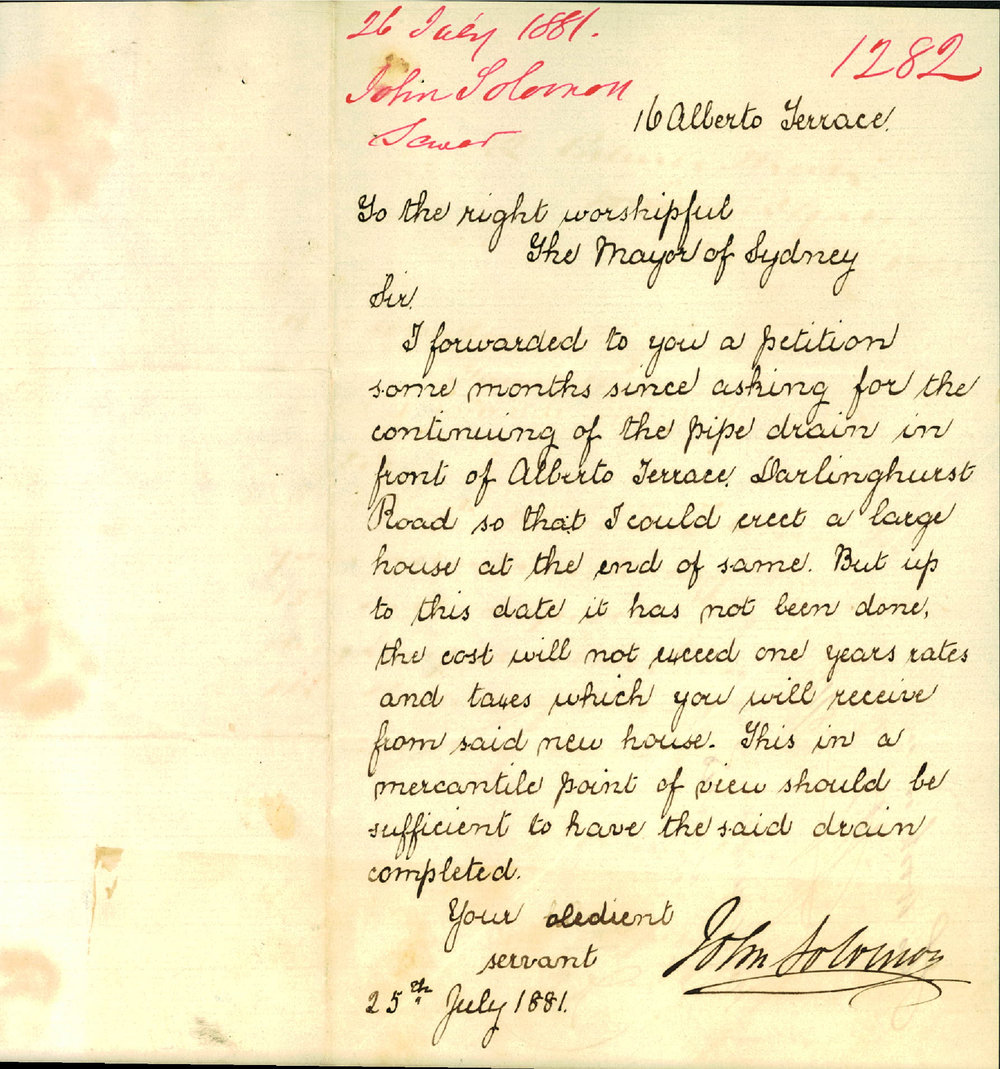 26 July 1881.
1282
John Solomon
Sewer
16 Alberto Terrace.
To the right worshipful
The Mayor of Sydney
Sir.
I forwarded to you a petition
some months since asking for the
continuing of the pipe drain in
front of Alberto Terrace. Darlinghurst
Road so that I could erect a large
house at the end of same. But up
to this date it has not been done,
the cost will not exceed one years rates
and taxes which you will receive
from said new house. This in a
mercantile point of view should be
sufficient to have the said drain
completed.
Your obedient
servant
John Solomon
25th July 1881.